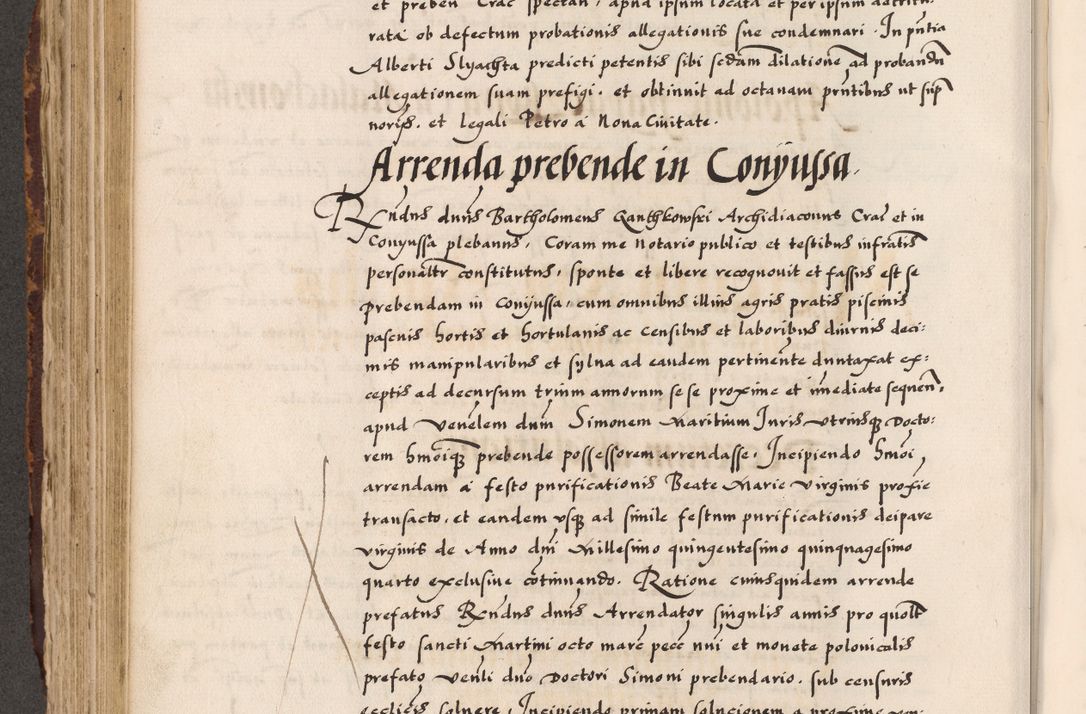 et preben Crac spectan, apud ipsum locata et per ipsum
rata ob defectum probationis allegationis sue condemnari. In pñtia
Alberti Slyachta predicti petentis sibi sedam dilatione ad probandu
allegationem suam prefigi. et obtinuit ad octanam pñtibus ut sup
noris. et legali Petro a Nona Ciuitate.
Arrenda prebende in Conyussa.
Rñdus dñus Bartholomeus Ganthkowski Archidiaconus Crac et in
Conyussa plebanus, Coram me Notario publico et testibus infratis
personaltr constitutus, sponte et libere recognouit et fassus est se
prebendam in Conyussa, cum omnibus illius agris pratis piscinis
pascuis hortis et hortulanis ac censibus et laboribus diurnis deci:
mis manipularibus et sylua ad eandem pertinente duntaxat ex:
ceptis ad decursum trium annorum se se proxime et imediate sequen,
apud venelem dum Simonem Maritium Juris vtriusq Docto:
rem hmoiq prebende possessorem arrendasse. Incipiendo hmoi
arrendam a festo purificationis Beate Marie virginis proxie
transacto, et eandem vsq ad simile festum purificationis deipare
virginis de Anno dni Millesimo quingentesimo quinquagesimo
quarto exclusiue cotinuando. Ratione cuiusquidem arrende
prefatus Rñdus dñus Arrendator singulis annis pro quolt
festo sancti Martini octo marc pecc nui et monete polonicalis
prefato venli dno Doctori Simoni prebendario. sub censuris
ecclicis soluere, Incipiendo primam solucionem a proxime